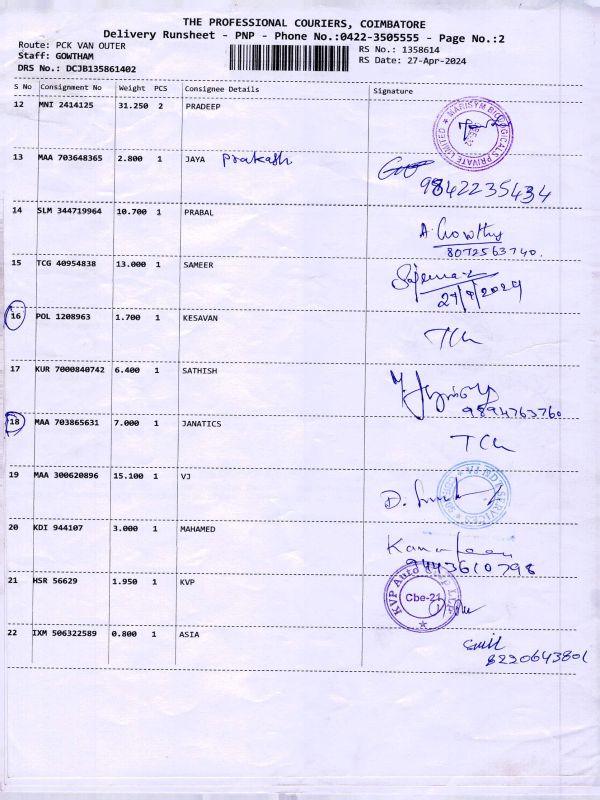 THE PROFESSIONAL COURIERS, COIMBATORE
Delivery Runsheet - PNP - Phone No.:0422-3505555 - Page No.:2
Route: PCK VAN OUTER
RS No.: 1358614
Staff: GOWTHAM
RS Date: 27-Apr-2024
DRS No.: DCJB135861402
S No Consignment No Weight PCS Consignee Details Signature
12 MNI 2414125 31.250 2 PRADEEP
MARISYM BIOLOGICALS PRIVATE LIMITED
13 MAA 703648365 2.800 1 JAYA Prakash
9842235434
14 SLM 344719964 10.700 1 PRABAL
A. Gowthy
8072563740.
15 TCG 40954838 13.000 1 SAMEER
27/4/2024
16 POL 1208963 1.700 1 KESAVAN
17 KUR 7000840742 6.400 1 SATHISH
9894763760
18 MAA 703865631 7.000 1 JANATICS
19 MAA 300620896 15.100 1 VJ
D.
20 KDI 944107 3.000 1 MAHAMED
9443610798
21 HSR 56629 1.950 1 KVP
KVP Auto
Cbe-21
22 IXM 506322589 0.800 1 ASIA
8220643801